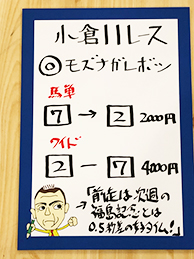 小倉11レース
◎モズナガレボシ
馬単
7 → 2 2000円
ワイド
2 ー 7 4000円
→「前走は次週の
福島記念とは
0.5秒差の好タイム!」